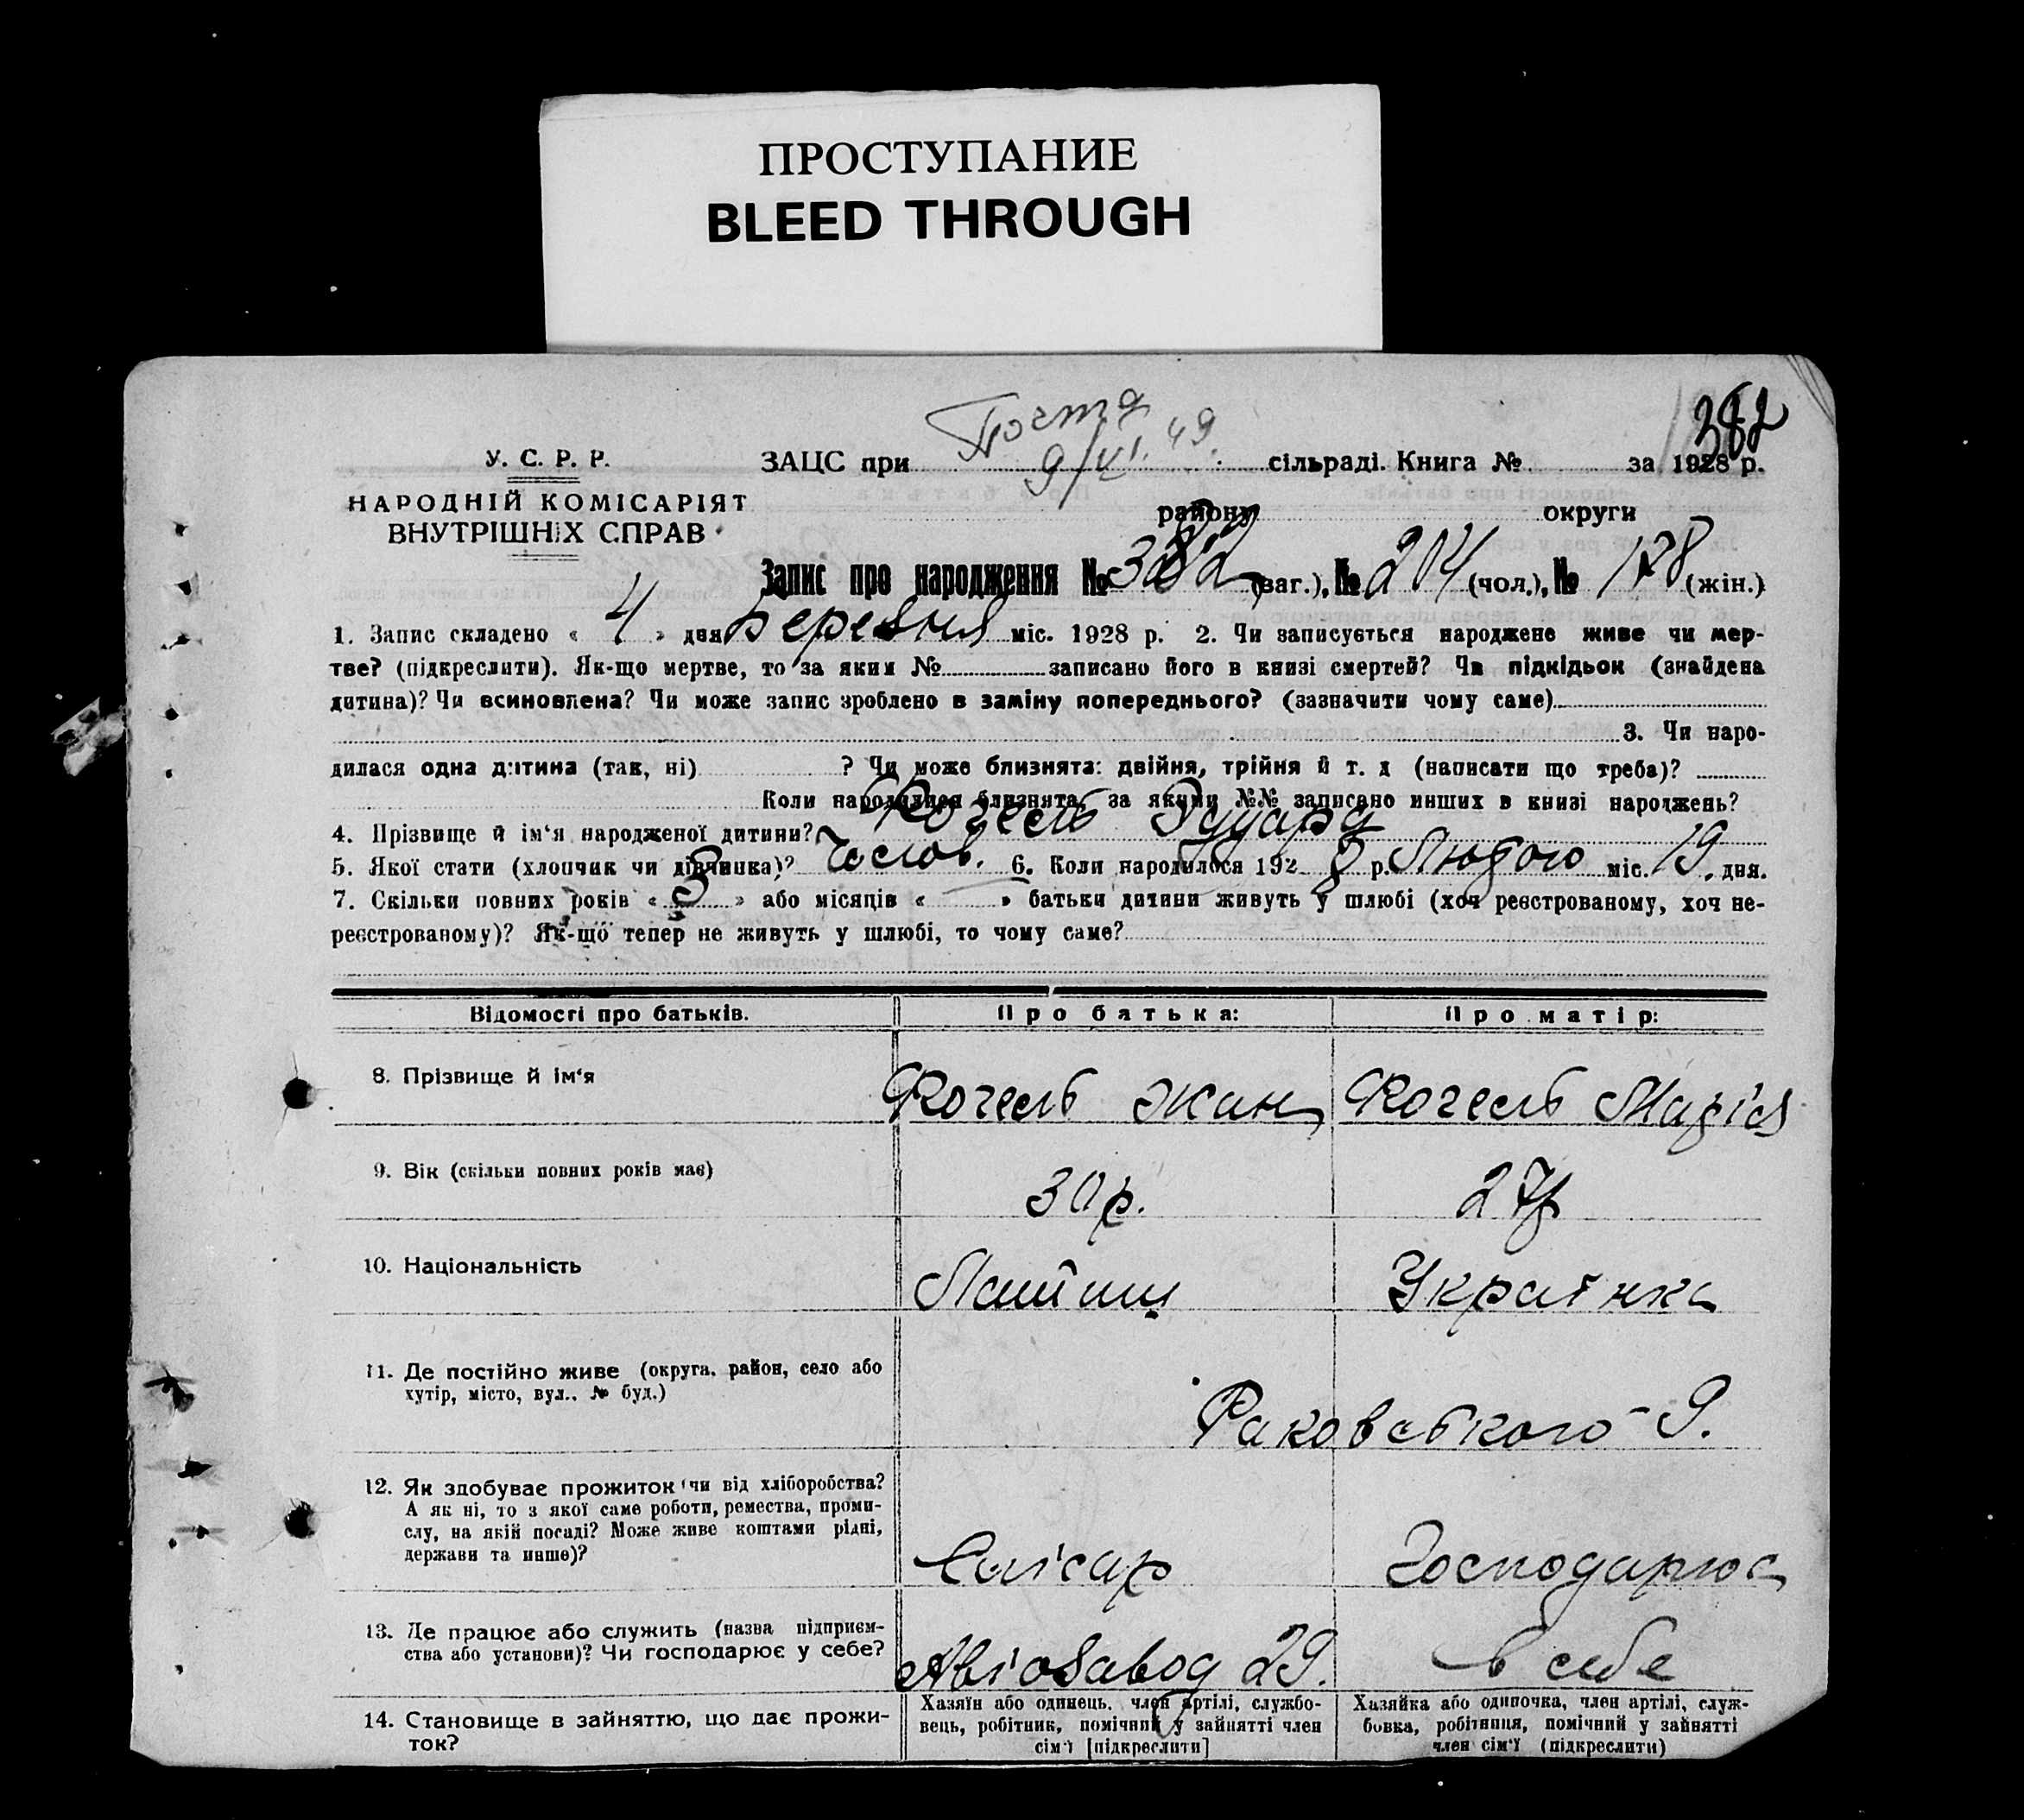 ПРОСТУПАНИЕ
BLEED THROUGH
Почта
9/VI.49.
382
У. С. Р. Р.
НАРОДНІЙ КОМІСАРІЯТ
ВНУТРІШНІХ СПРАВ
ЗАЦС при сільраді. Книга № за 1928 р.
району округи
Запис про народження № 382 (заг.), № 204 (чол.), № 178 (жін.)
1. Запис складено « 4 » дня Березня міс. 1928 р. 2. Чи записується народжене живе чи мер-
тве? (підкреслити). Як-що мертве, то за яким № записано його в книзі смертей? Чи підкідьок (знайдена
дитина)? Чи всиновлена? Чи може запис зроблено в заміну попереднього? (зазначити чому саме)
3. Чи наро-
дилася одна дитина (так, ні) ? Чи може близнята: двійня, трійня й т. д (написати що треба)?
Коли народилися близнята, за якими №№ записано инших в книзі народжень?
4. Прізвище й ім‘я народженої дитини? Едуард
5. Якої статі (хлопчик чи дівчинка)? Чолов. 6. Коли народилося 1928 р. Лютого міс. 19. дня.
7. Скільки повних років « 3 » або місяців « » батьки дитини живуть у шлюбі (хоч реєстрованому, хоч не-
реєстрованому)? Як-що тепер не живуть у шлюбі, то чому саме?
Відомості про батьків. Про батька: Про матір:
8. Прізвище й ім‘я Жан Марія
9. Вік (скільки повних років має) 30 р. 27 р
10. Національність Латиш Українка
11. Де постійно живе (округа, район, село або
хутір, місто, вул., № буд.)
Раковського - 9.
12. Як здобуває прожиток (чи від хліборобства?
А як ні, то з якої саме роботи, ремества, проми-
слу, на якій посаді? Може живе коштами рідні,
держави та инше)?
Слісар Господарює
13. Де працює або служить (назва підприєм-
ства або установи)? Чи господарює у себе?
Авіозавод 29. в себе
14. Становище в зайняттю, що дає прожи-
ток?
Хазяїн або одинець, член артілі, службо-
вець, робітник, помічний у зайнятті член
сім‘ї [підкреслити]
Хазяйка або одиночка, член артілі, служ-
бовка, робітниця, помічний у зайнятті
член сім‘ї (підкреслити)